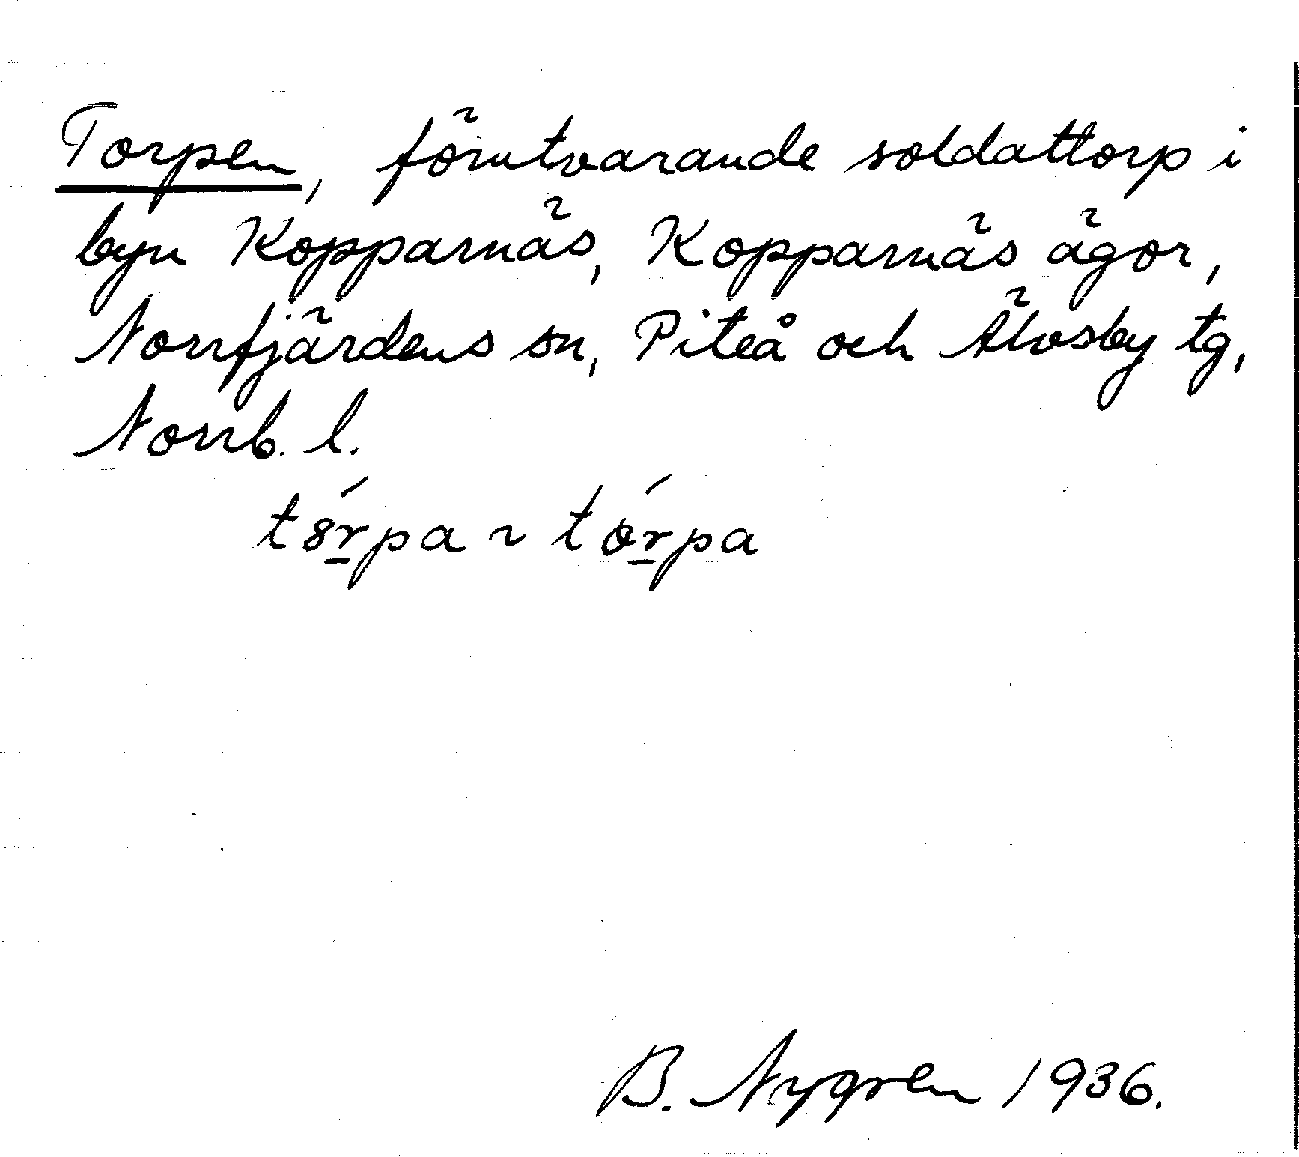 Torpen, förutvarande soldattorp i
byn Kopparnäs, Kopparnäs ägor,
Norrfjärdens sn, Piteå och Älvsby tg,
Norrb. l.
t8ŕpa ~ tóŕpa
B. Nygren 1936.